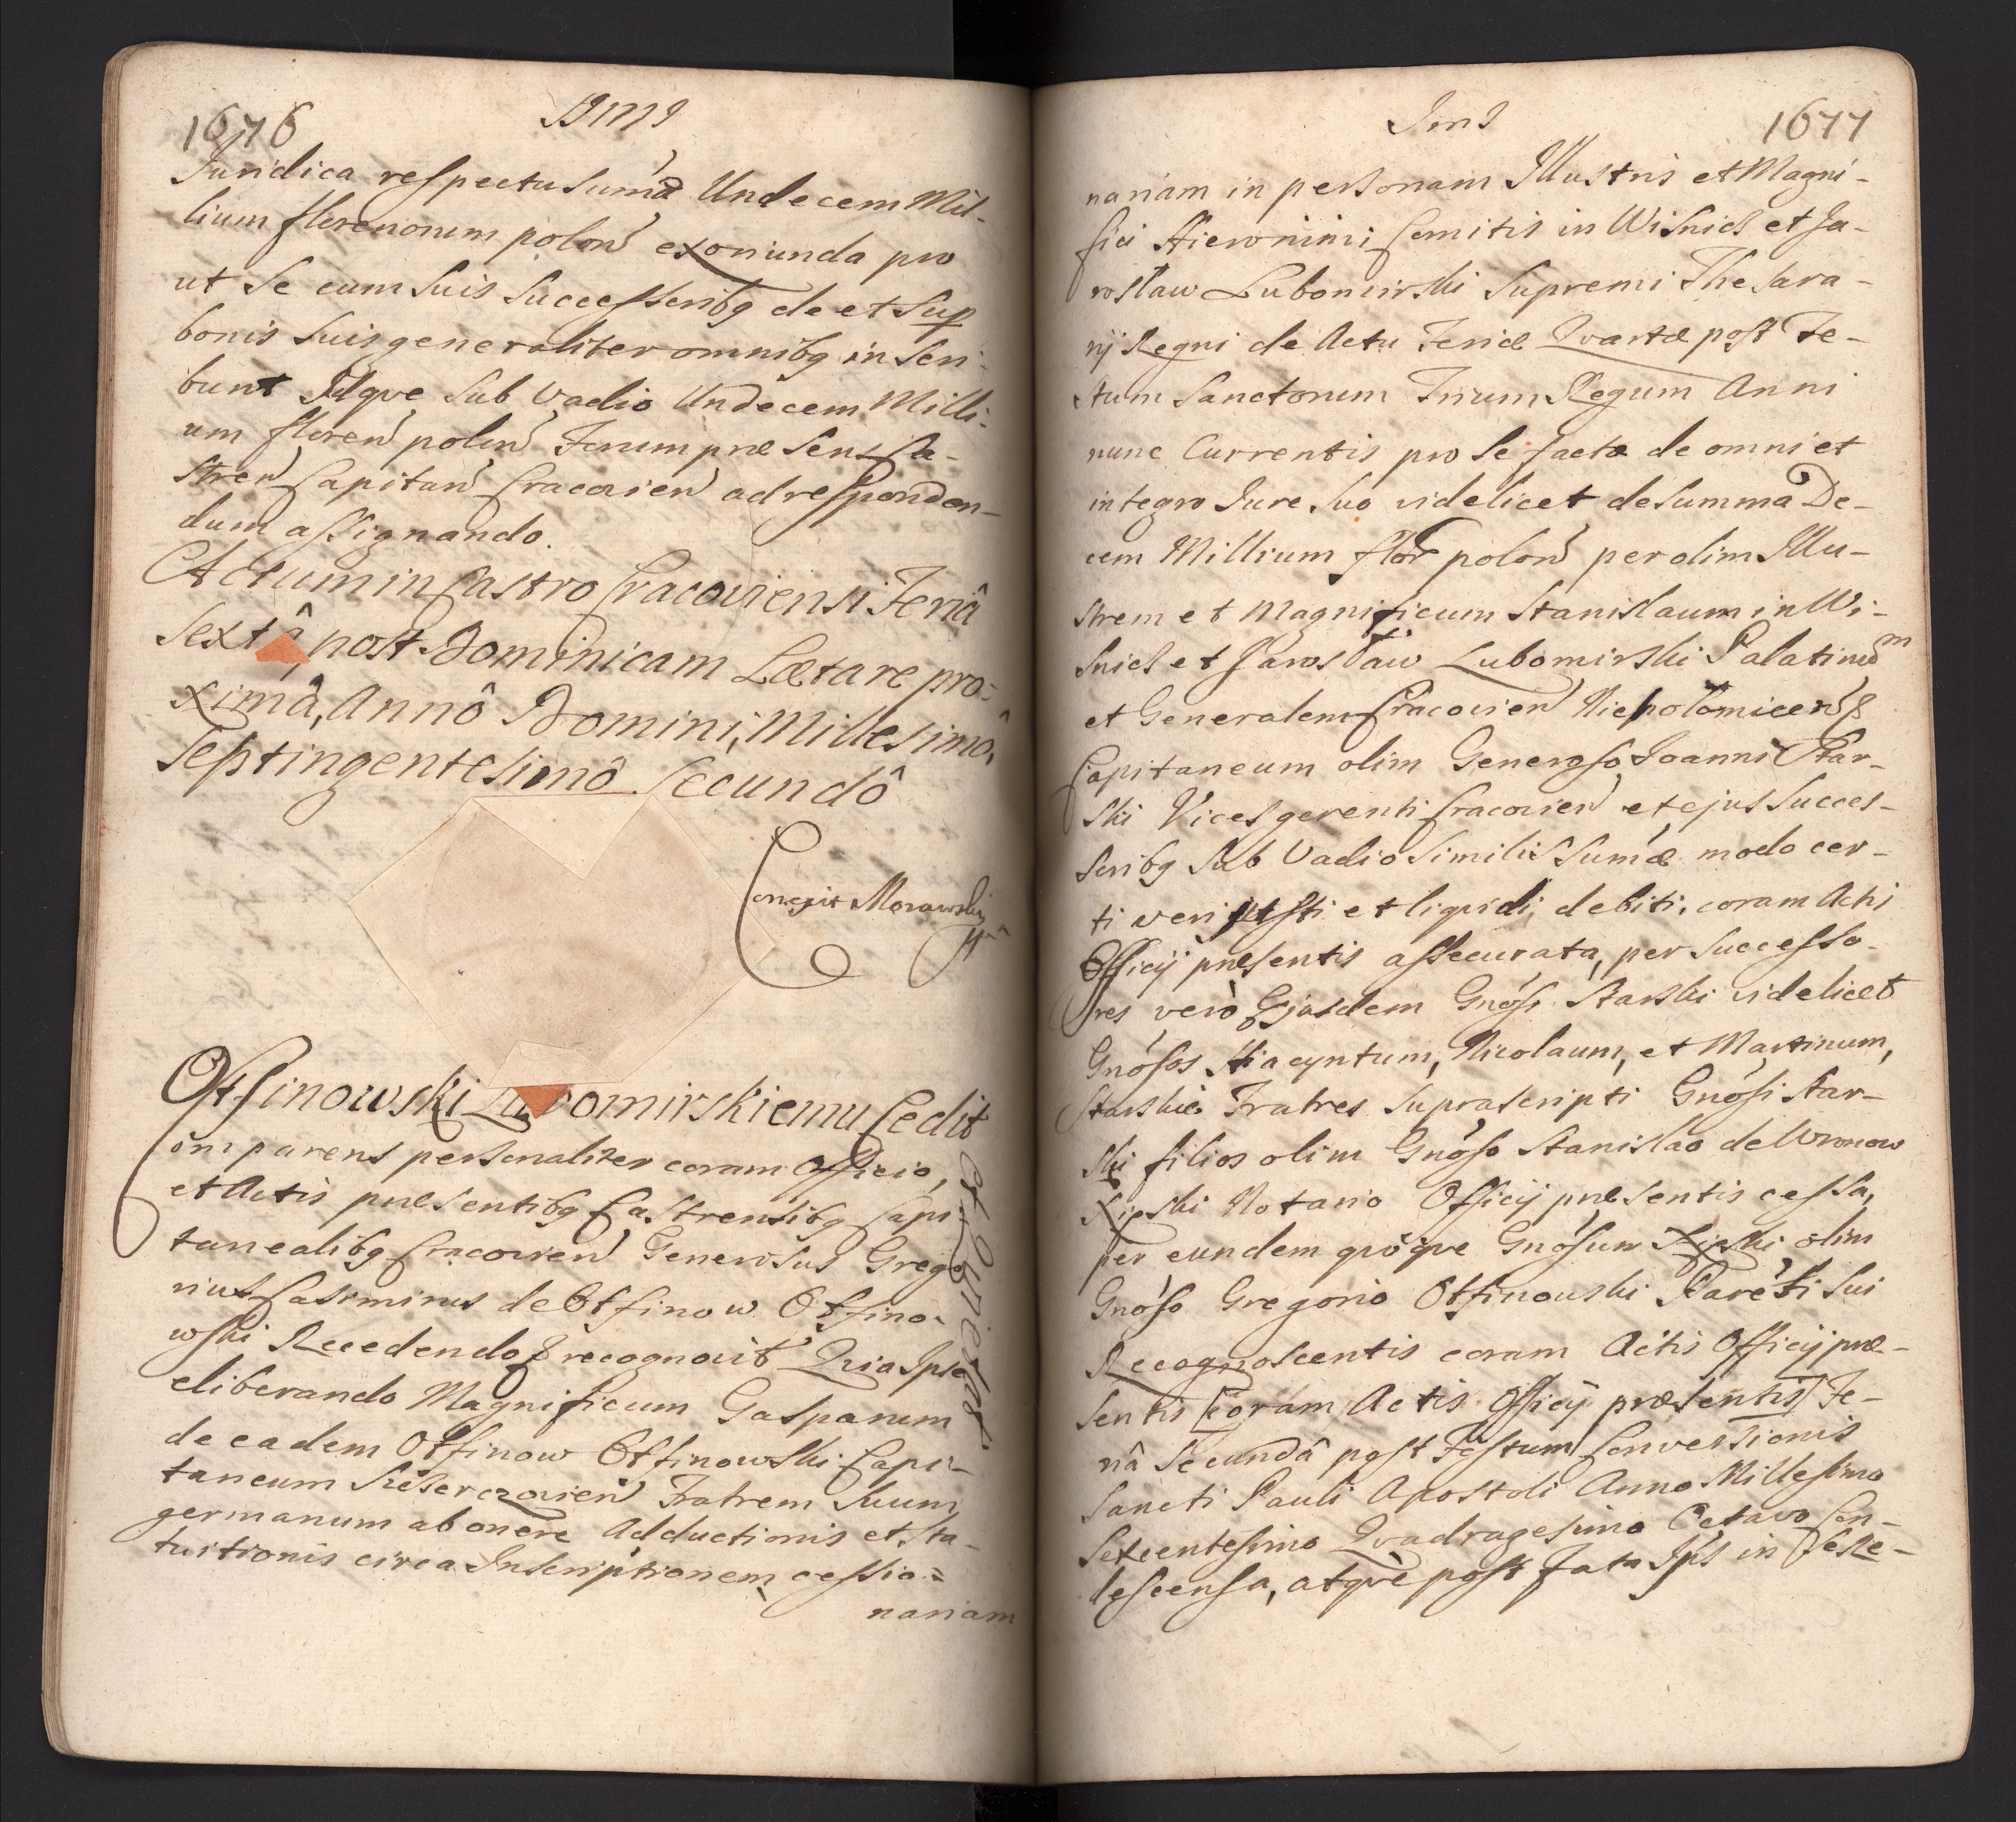 1676
Juridica respectu sumã Undecem Mil-
lium florenorum polon exoriunda pro
ut se cum suis successoribq de et sup
bonis suis generaliter omnibq inseri-
bunt Idqve sub vadio Undecem Milli-
um floren polon Forum præsens Ca-
stren Capitan Cracovien ad responden-
dum assignando.
Actum in Castro Cracoviensi Feriâ
Sextâ post Dominicam Lætare pro=
ximâ, Annô Domini, Millesimô,
Septingentesimô Secundô
Correxit Morawski
Otfinowski Lubomirskiemu Cedit
et Quietat
Comparens personaliter coram Officio,
et Actis præsentibq Castrensibq Capi
tanealibq Cracovien Generosus Grego
rius Casimirus de Otfinow Otfino-
wski Recedendo & recognovit Quia Ipse
eliberando Magnificum Gasparum
de eadem Otfinow Otfinowski Capi-
taneum Fratrem suum
germanum ab onere Adductionis et Sta-
tuitionis circa Inscriptionem cessio=
nariam
1677
nariam in personam Illustris et Magni-
fici Hieronimi Comitis in Wisnicz et Ja-
rosław Lubomirski Supremi Thesara-
rij Regni de Actu Feriæ Qvartæ post Fe-
stum Sanctorum Trium Regum Anni
nunc Currentis pro se factæ de omni et
integro Jure suo videlicet de summa De-
cem Millium flor polon per olim Illu-
strem et Magnificum Stanislaum in Wi-
snicz et Jarosław Lubomirski Palatinum
et Generalem Cracovien Niepołomicen &
Capitaneum olim Generoso Joanni Star-
ski Vicesgerenti Cracovien et ejus Succes-
soribq sub Vadio similis sumæ modo cer-
ti veri justi et liqvidi debiti, coram Actis
Officij præsentis assecurata, per successo-
res verò Ejusdem Gnósi Starski videlicet
Gnósos Hiacyntum, Nicolaum, et Martinum,
Starskie Fratres suprascripti Gnósi Star-
ski filios olim Gnóso Stanislao de Wronow
Xięski Notario Officij præsentis cessa,
per eundem qvóqve Gnósum Xięski olim
Gnóso Gregorio Otfinowski Parẽti sui
Recognoscentis coram Actis Officij præ-
sentis [coram Actis Officij præsentis] Fe-
riâ Secundâ post Festum Conversionis
Sancti Pauli Apostoli Anno Millesimo
Sexcentesimo Qvadragesimo Octavo Con-
descensa, atqvè post fata Ipś in Recο-